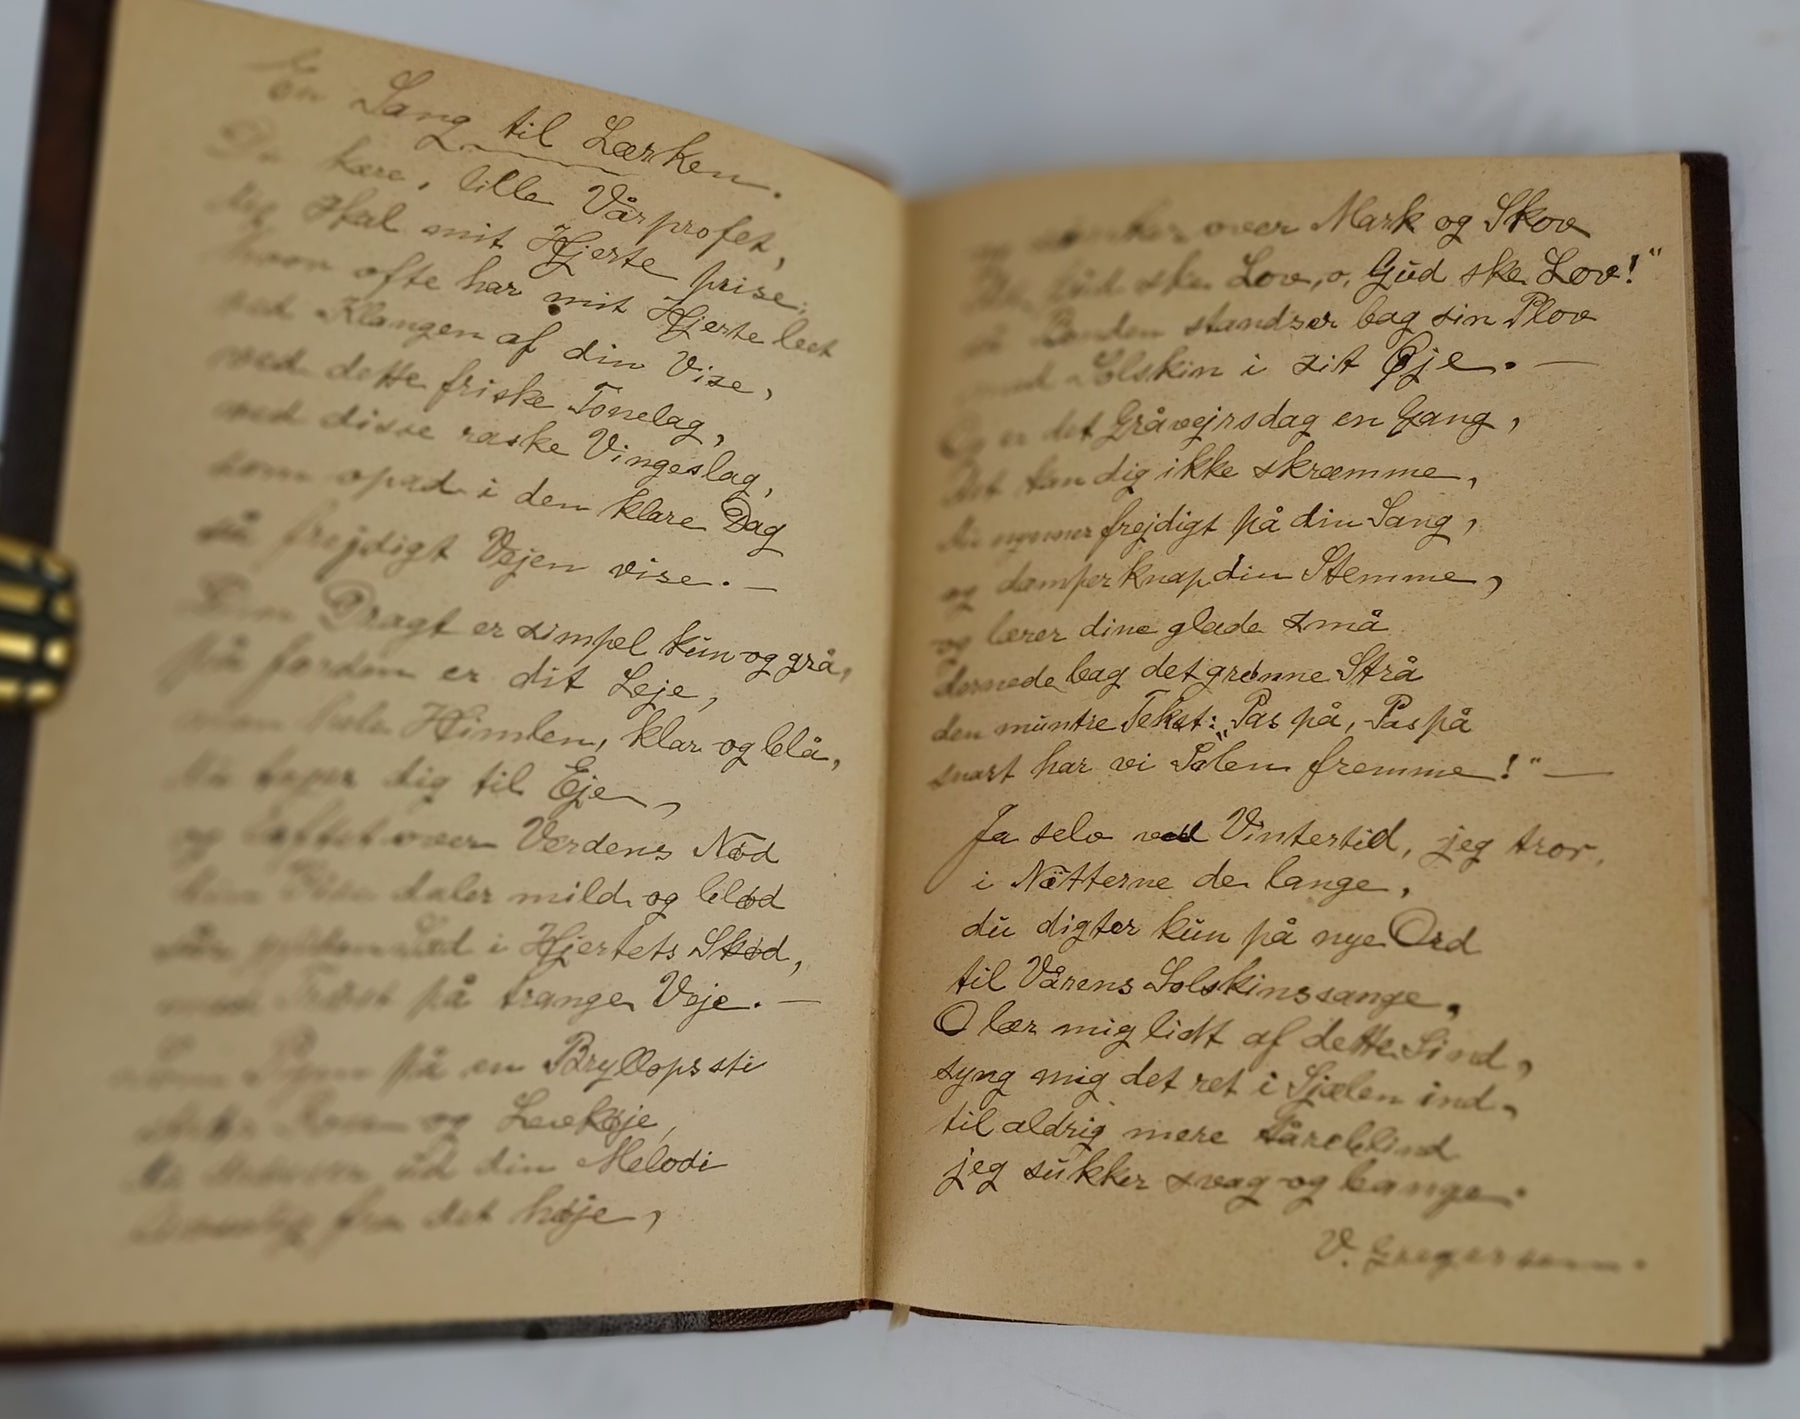 En Sang til Lærken.
Du kære, lille Vårprofet,
dig skal mit Hjerte prise,
hvor ofte har mit Hjerte leet
ved Klangen af din Vise,
ved dette friske Tonelag,
ved disse raske Vingeslag,
som opad i den klare Dag
så frejdigt Vejen vise. —
Din Dragt er simpel kun og grå,
på Jorden er dit Leje,
men hele Himlen, klar og blå,
du tager dig til Eje,
og løftet over Verdens Nød
din Vise daler mild og blød
som gylden Sæd i Hjertets Skød,
med Trøst på trange Veje. —
Som Pigen på en Bryllopssti
strør Rosen og Levkøje,
du ud din Melodi
fra det høje,
og over Mark og Skov
Gud ske Lov, o, Gud ske Lov!"
så Bonden standser bag sin Plov
med Solskin i sit Øje. —
Og er det Gråvejrsdag en Gang,
det kan dig ikke skræmme,
du nynner frejdigt på din Sang,
og damper knap din Stemme,
og lærer dine glade små
dernede bag det grønne Strå
den muntre Tekst: "Pas på, Pas på
snart har vi Solen fremme!" —
Ja selv ved Vintertid, jeg tror,
i Nätterne de lange,
du digter kun på nye Ord
til Vårens Solskinssange.
O lær mig lidt af dette Sind,
syng mig det ret i Sjælen ind,
til aldrig mere tåreblind
jeg sukker svag og bange.
V. Gregersen.